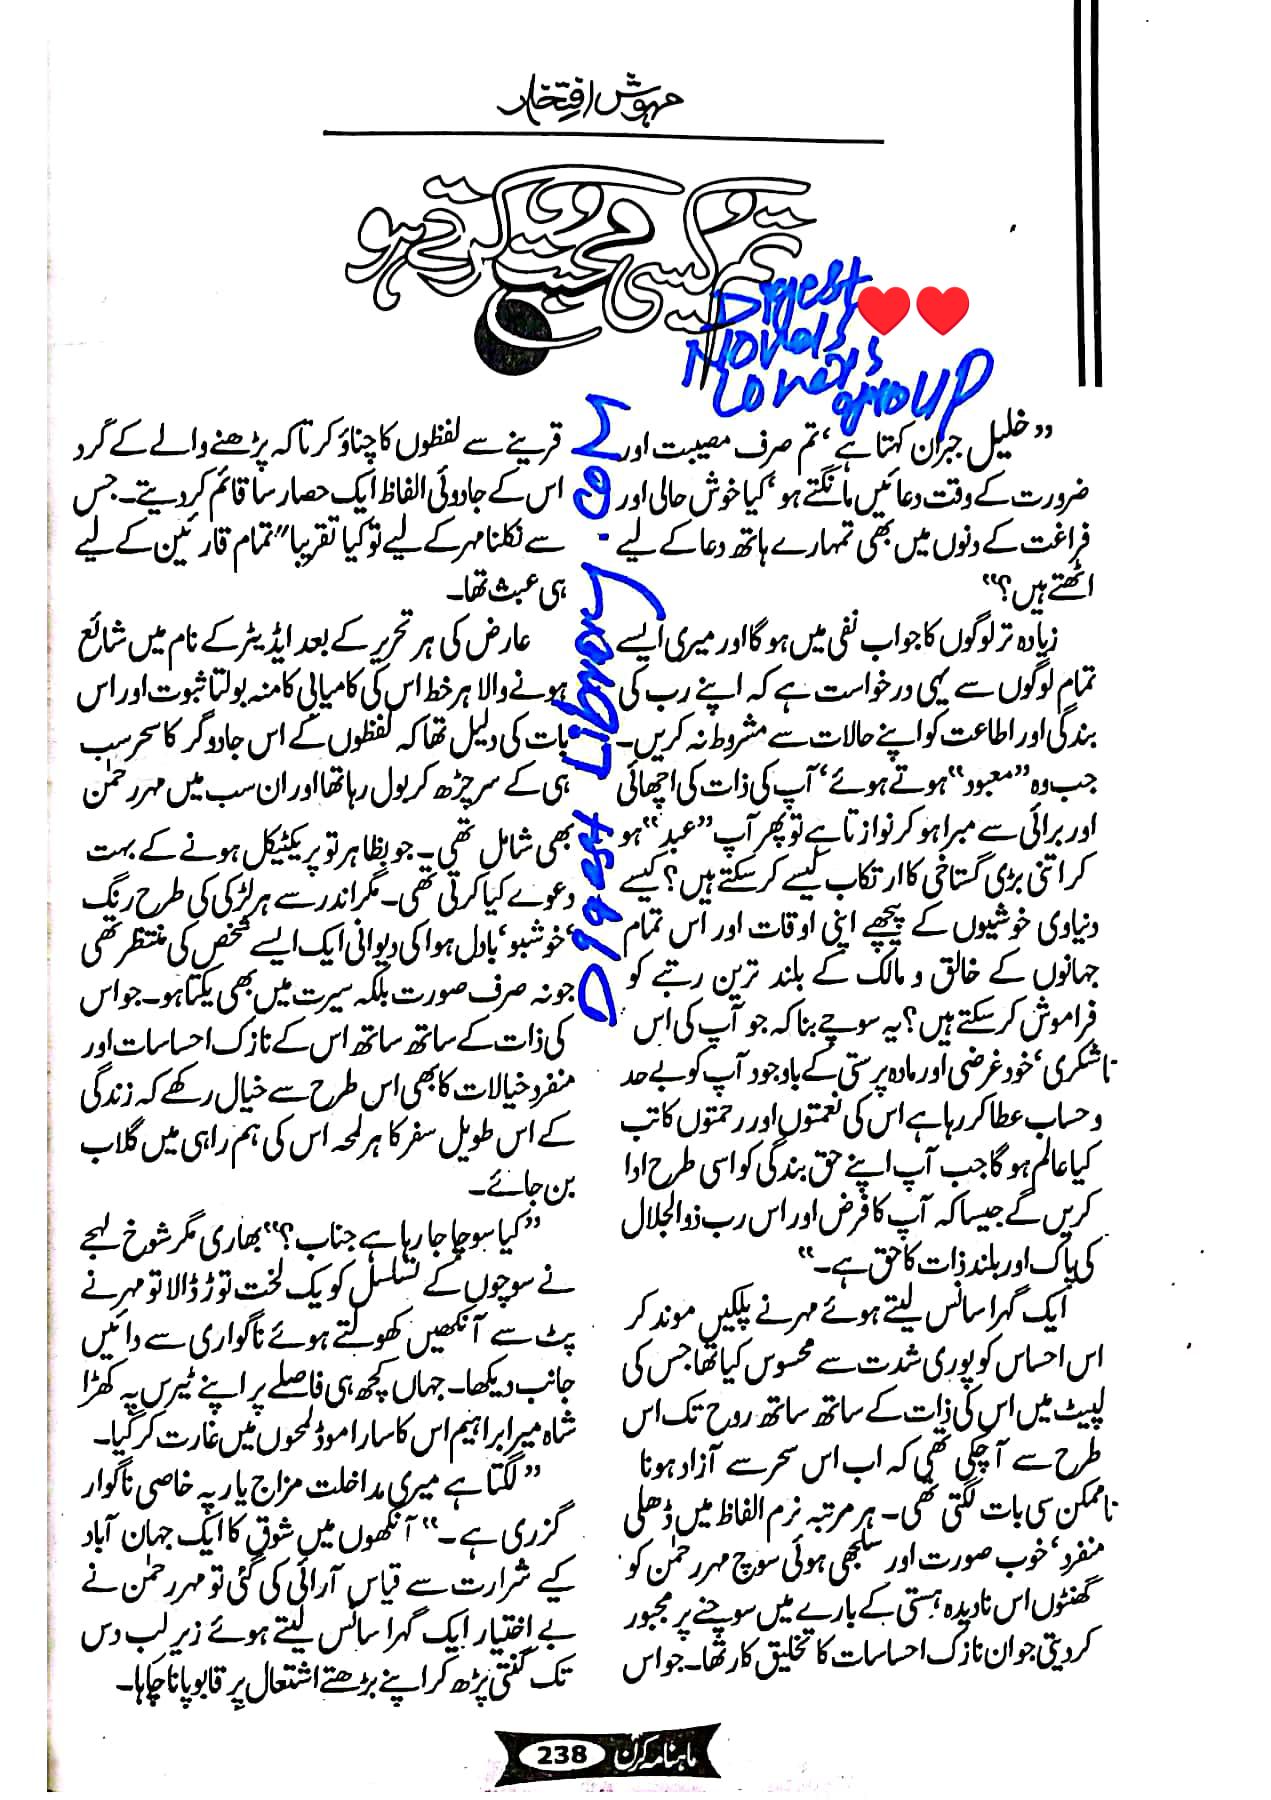 مہوش افتخار
تم کیسی محبت کرتے ہو
Digest
Novels
Lovers
group
Digest Library.com
”خلیل جبران کہتا ہے‘ تم صرف مصیبت اور
ضرورت کے وقت دعائیں مانگتے ہو‘ کیا خوش حالی اور
فراغت کے دنوں میں بھی تمہارے ہاتھ دعا کے لیے
اٹھتے ہیں؟“
زیادہ تر لوگوں کا جواب نفی میں ہو گا اور میری ایسے
تمام لوگوں سے یہی درخواست ہے کہ اپنے رب کی
بندگی اور اطاعت کو اپنے حالات سے مشروط نہ کریں۔
جب وہ ”معبود“ ہوتے ہوئے‘ آپ کی ذات کی اچھائی
اور برائی سے مبرا ہو کر نوازتا ہے تو پھر آپ ”عبد“ ہو
کر اتنی بڑی گستاخی کا ارتکاب کیسے کر سکتے ہیں؟ کیسے
دنیاوی خوشیوں کے پیچھے اپنی اوقات اور اس تمام
جہانوں کے خالق و مالک کے بلند ترین رتبے کو
فراموش کر سکتے ہیں؟ یہ سوچے بنا کہ جو آپ کی اس
ناشکری‘ خود غرضی اور مادہ پرستی کے باوجود آپ کو بے حد
و حساب عطا کر رہا ہے اس کی نعمتوں اور رحمتوں کا تب
کیا عالم ہو گا جب آپ اپنے حق بندگی کو اسی طرح ادا
کریں گے جیسا کہ آپ کا فرض اور اس رب ذوالجلال
کی پاک اور بلند ذات کا حق ہے۔“
ایک گہرا سانس لیتے ہوئے مہر نے پلکیں موند کر
اس احساس کو پوری شدت سے محسوس کیا تھا جس کی
لپیٹ میں اس کی ذات کے ساتھ ساتھ روح تک اس
طرح سے آ چکی تھی کہ اب اس سحر سے آزاد ہونا
ناممکن سی بات لگتی تھی۔ ہر مرتبہ نرم الفاظ میں ڈھلی
منفرد‘ خوب صورت اور سلجھی ہوئی سوچ مہر رحمٰن کو
گھنٹوں اس نادیدہ ہستی کے بارے میں سوچنے پر مجبور
کر دیتی جو ان نازک احساسات کا تخلیق کار تھا۔ جو اس
قرینے سے لفظوں کا چناؤ کرتا کہ پڑھنے والے کے گرد
اس کے جادوئی الفاظ ایک حصار سا قائم کر دیتے۔ جس
سے نکلنا مہر کے لیے تو کیا تقریبا“ تمام قارئین کے لیے
ہی عبث تھا۔
عارض کی ہر تحریر کے بعد ایڈیٹر کے نام میں شائع
ہونے والا ہر خط اس کی کامیابی کا منہ بولتا ثبوت اور اس
بات کی دلیل تھا کہ لفظوں کے اس جادوگر کا سحر سب
ہی کے سر چڑھ کر بول رہا تھا اور ان سب میں مہر رحمٰن
بھی شامل تھی۔ جو بظاہر تو پریکٹیکل ہونے کے بہت
دعوے کیا کرتی تھی۔ مگر اندر سے ہر لڑکی کی طرح رنگ
‘خوشبو‘ بادل ہوا کی دیوانی ایک ایسے شخص کی منتظر تھی
جو نہ صرف صورت بلکہ سیرت میں بھی یکتا ہو۔ جو اس
کی ذات کے ساتھ ساتھ اس کے نازک احساسات اور
منفرد خیالات کا بھی اس طرح سے خیال رکھے کہ زندگی
کے اس طویل سفر کا ہر لمحہ اس کی ہم راہی میں گلاب
بن جائے۔
”کیا سوچا جا رہا ہے جناب؟“ بھاری مگر شوخ لہجے
نے سوچوں کے تسلسل کو یک لخت توڑ ڈالا تو مہر نے
پٹ سے آنکھیں کھولتے ہوئے ناگواری سے دائیں
جانب دیکھا۔ جہاں کچھ ہی فاصلے پر اپنے ٹیرس پہ کھڑا
شاہ میر ابراہیم اس کا سارا موڈ لمحوں میں غارت کر گیا۔
”لگتا ہے میری مداخلت مزاج یار پہ خاصی ناگوار
گزری ہے۔“ آنکھوں میں شوق کا ایک جہان آباد
کیے شرارت سے قیاس آرائی کی گئی تو مہر رحمٰن نے
بے اختیار ایک گہرا سانس لیتے ہوئے زیر لب دس
تک گنتی پڑھ کر اپنے بڑھتے اشتعال پر قابو پانا چاہا۔
ماہنامہ کرن 238